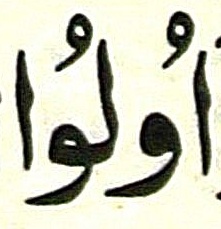 اُولُوا